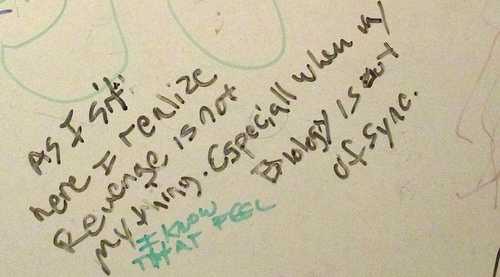 As I sit
here I realize
Revenge is not
my thing. Especiall when my
Biology is out
of sync.
I KNOW
THAT FEEL